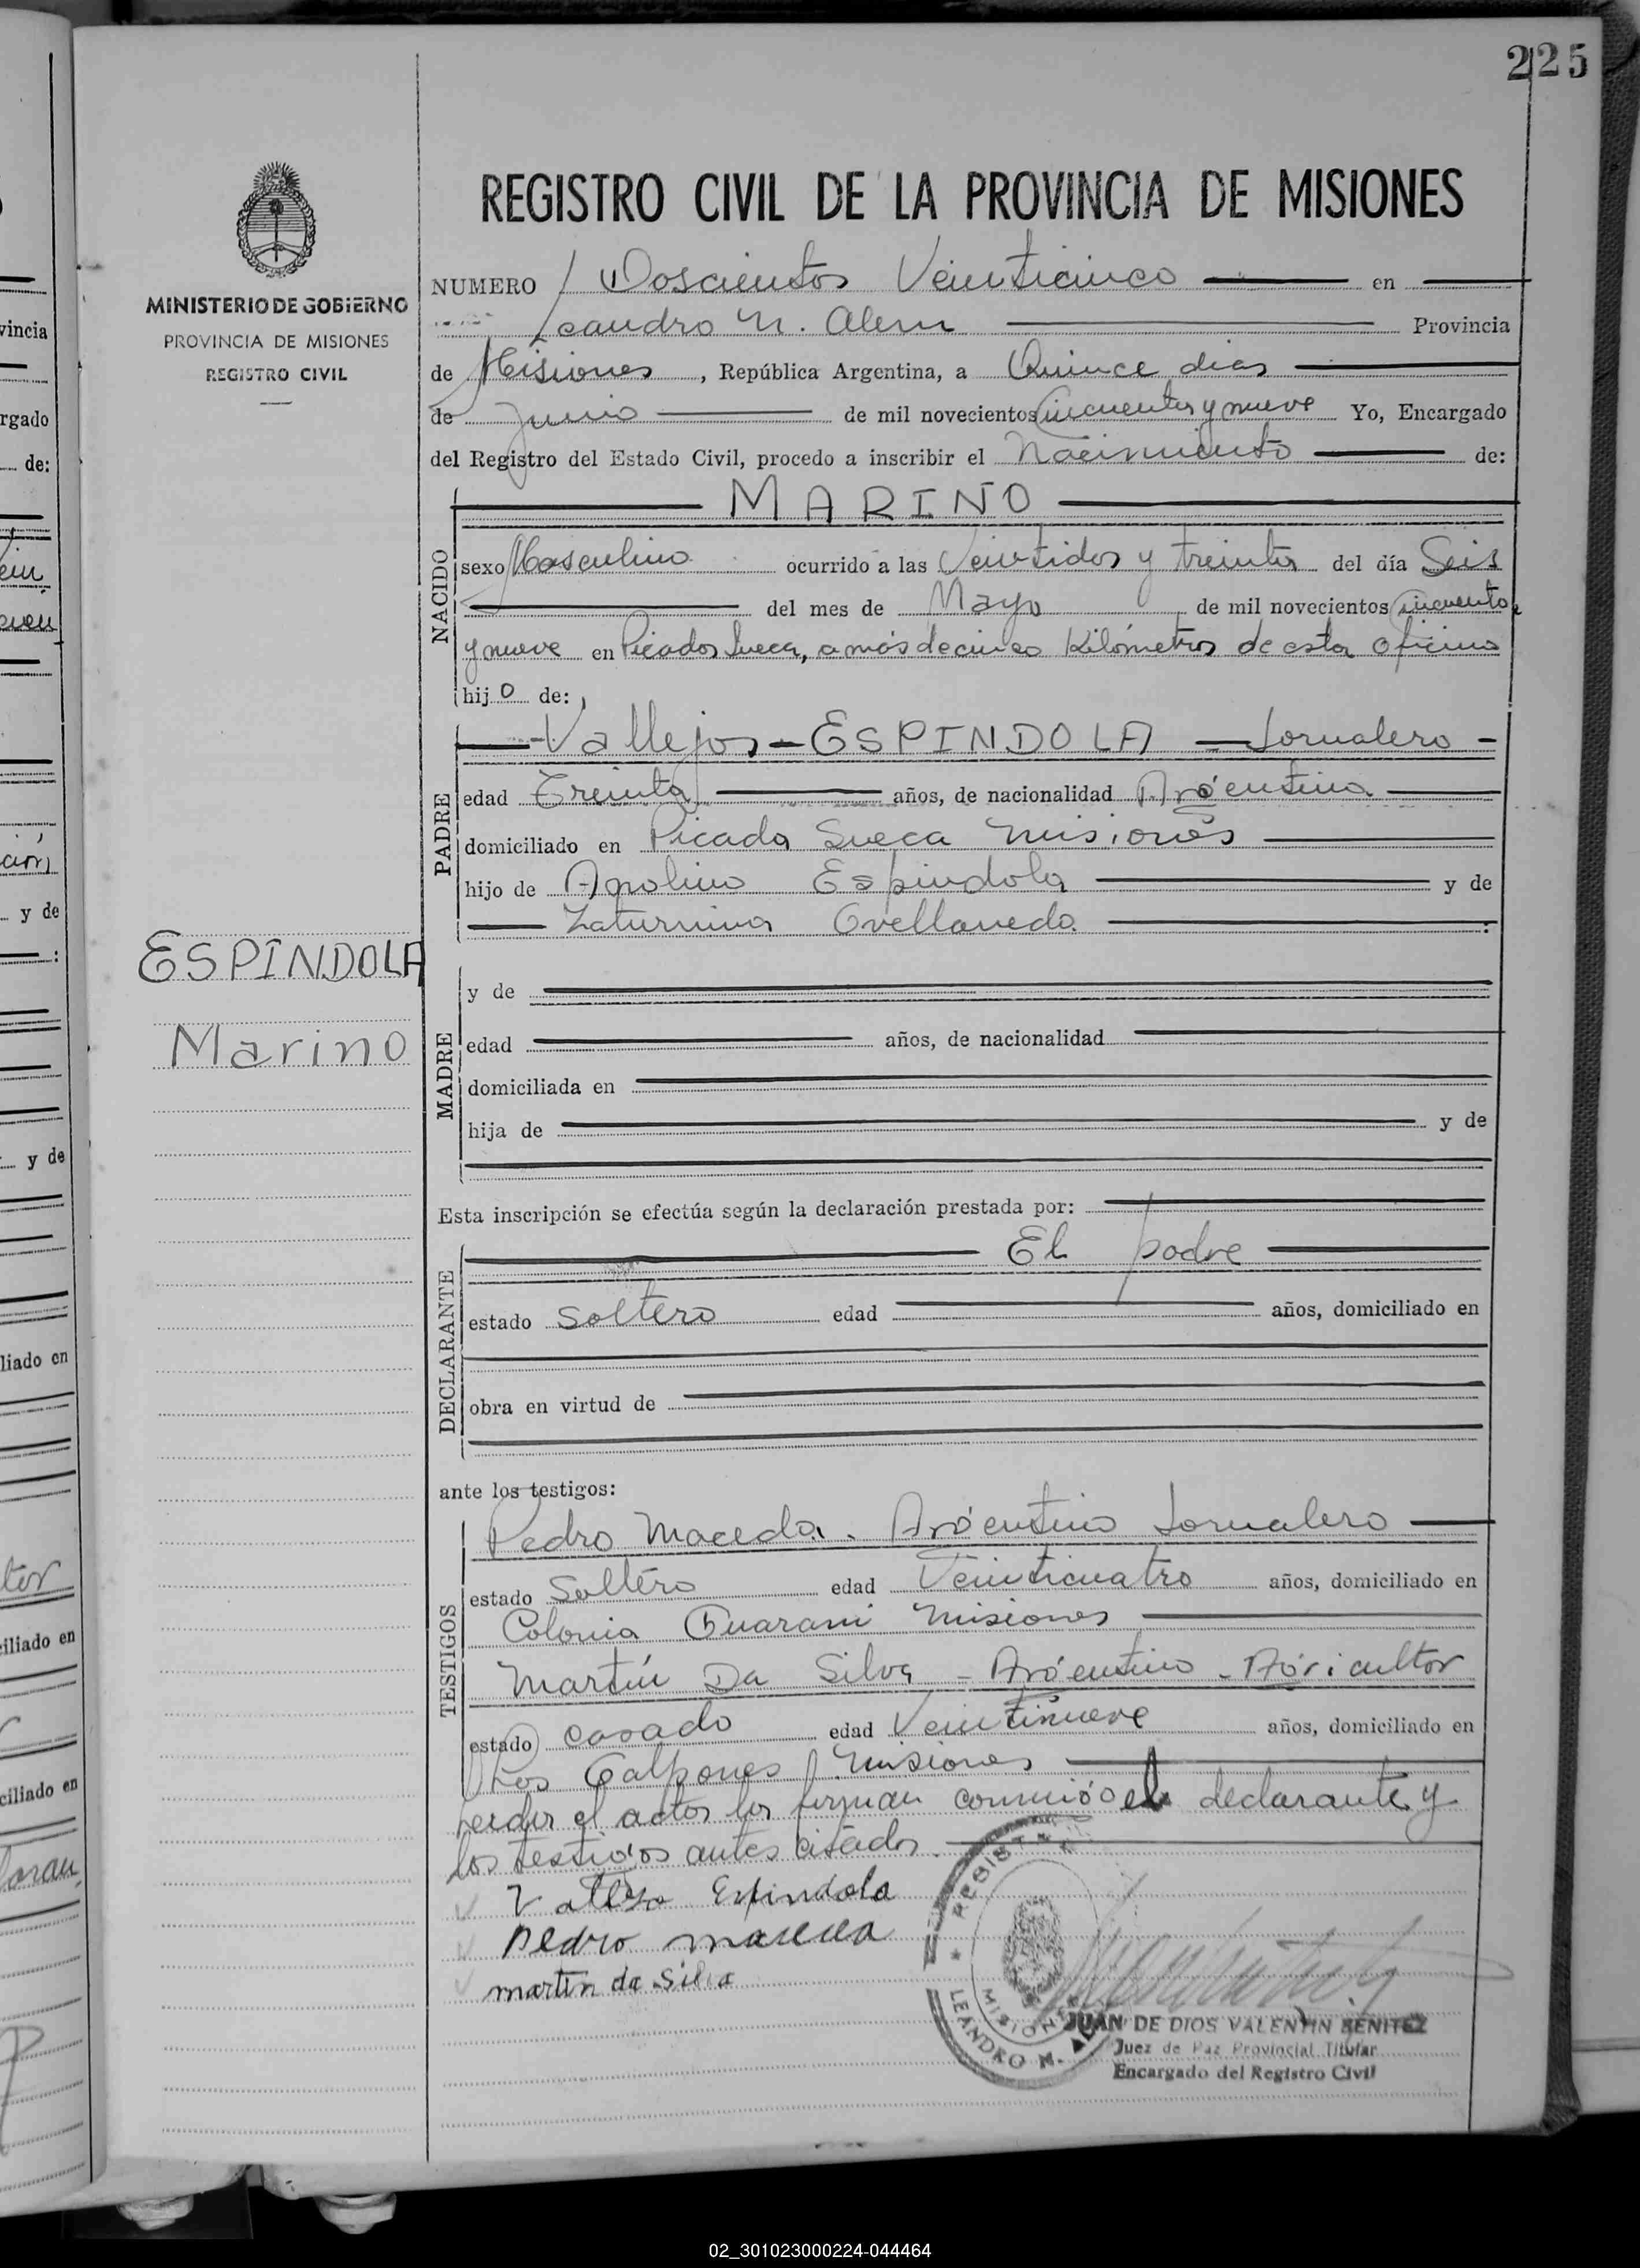 225
REGISTRO CIVIL DE LA PROVINCIA DE MISIONES
MINISTERIO DE GOBIERNO
PROVINCIA DE MISIONES
REGISTRO CIVIL
NUMERO Doscientos Veinticinco en
Leandro N. Alem Provincia
de Misiones, República Argentina, a Quince dias
de Junio de mil novecientos Cincuenta y nueve Yo, Encargado
del Registro del Estado Civil, procedo a inscribir el Nacimiento de:
MARINO
NACIDO
sexo Masculino ocurrido a las Veintidos y treinta del día Seis
del mes de Mayo de mil novecientos Cincuenta
y nueve en Picada Sueca, a más de cinco Kilómetros de esta Oficina
hijo de:
Vallejos - ESPINDOLA - Jornalero -
PADRE
edad Treinta años, de nacionalidad Argentina
domiciliado en Picada Sueca Misiones
hijo de Apolino Espindola y de
Zaturnina Ovellaneda
ESPINDOLA
Marino
MADRE
y de
edad años, de nacionalidad
domiciliada en
hija de y de
Esta inscripción se efectúa según la declaración prestada por:
El padre
DECLARANTE
estado Soltero edad años, domiciliado en
obra en virtud de
ante los testigos:
TESTIGOS
Pedro Maceda. Argentino Jornalero
estado Soltero edad Veinticuatro años, domiciliado en
Colonia Guarani Misiones
Martín Da Silva - Argentino - Agricultor
estado Casado edad Veintinueve años, domiciliado en
Los Galpones Misiones
Leida el acta la firman conmigo el declarante y
los testigos antes citados.
Espindola
Pedro
martin da Silva
REGISTRO
MISIONES
LEANDRO N. ALEM
JUAN DE DIOS VALENTIN BENITEZ
Juez de Paz Provincial Titular
Encargado del Registro Civil
02_301023000224-044464